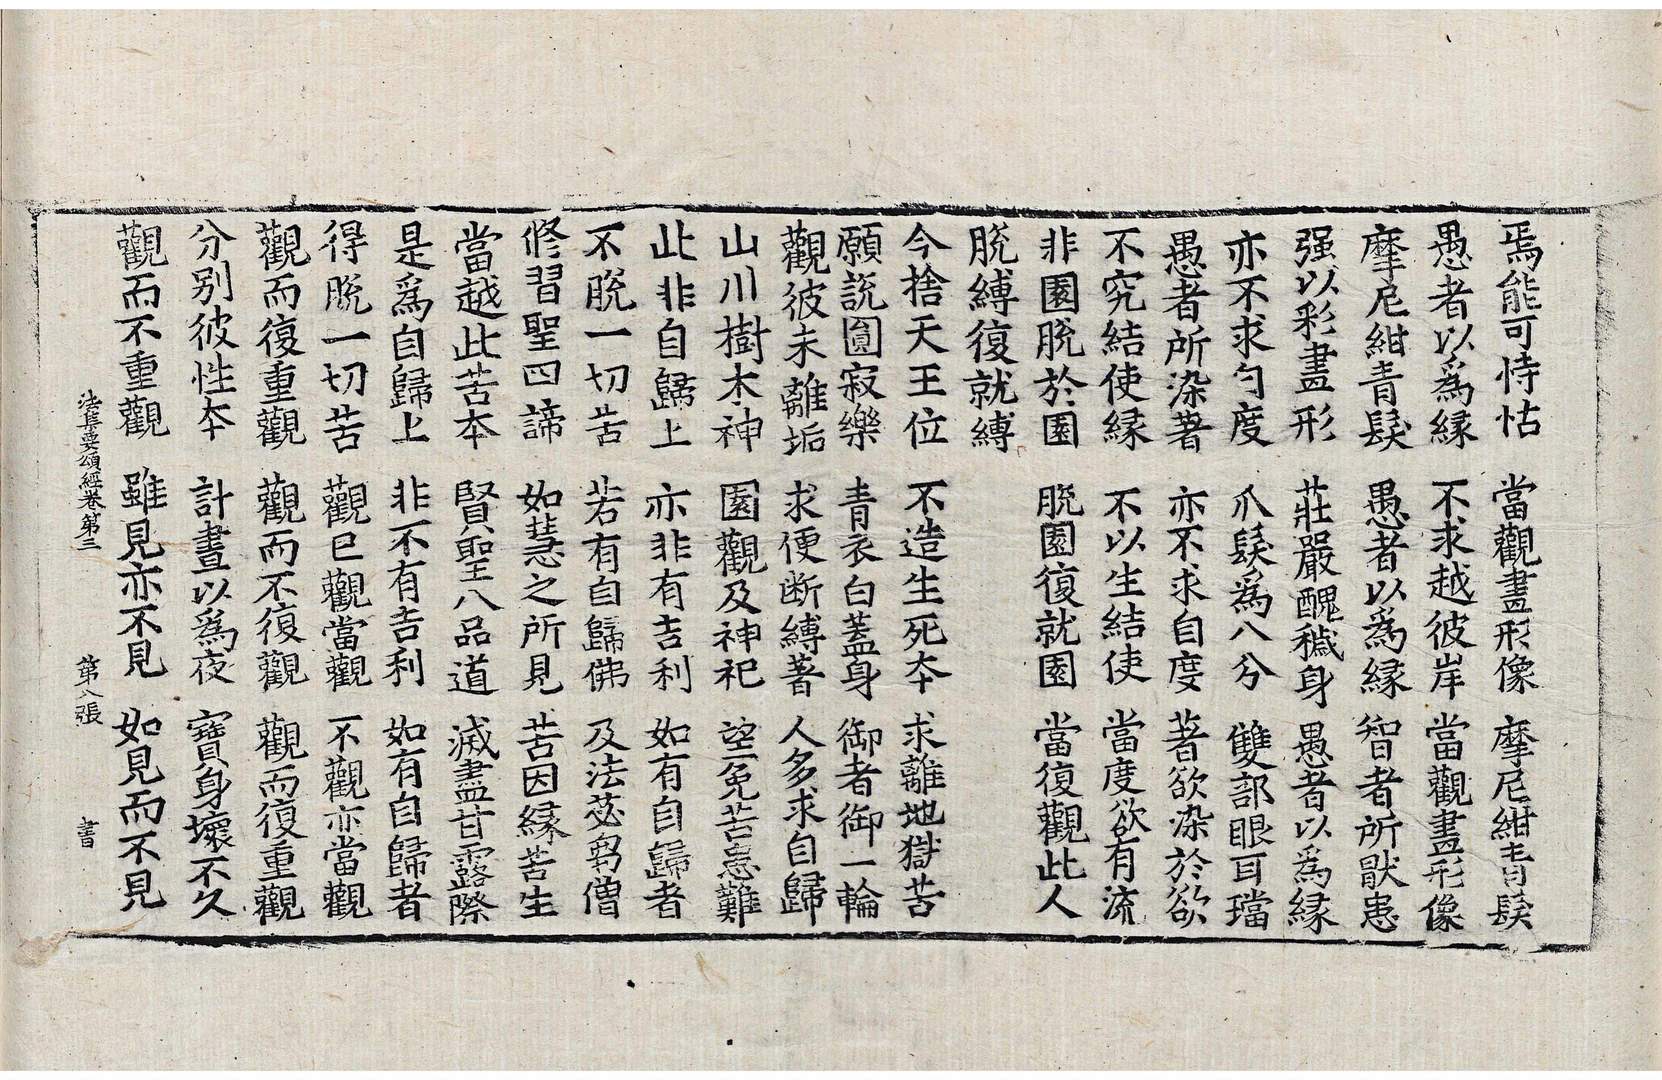 焉能可恃怙　當觀畫形像　摩尼紺青髮
愚者以爲縁　不求越彼岸　當觀畫形像
摩尼紺青髮　愚者以爲縁　智者所猒患
强以彩畫形　莊嚴醜穢身　愚者以爲縁
亦不求勺度　爪髮爲八分　雙部眼耳璫
愚者所染著　亦不求自度　著欲染於欲
不究結使縁　不以生結使　當度欲有流
非園脫於園　脫園復就園　當復觀此人
脫縛復就縛
今捨天王位　不造生死本　求離地獄苦
願說圓寂樂　青衣白蓋身　御者御一輪
觀彼未離垢　求便断縛著　人多求自歸
山川樹木神　園觀及神祀　望免苦患難
此非自歸上　亦非有吉利　如有自歸者
不脫一切苦　若有自歸佛　及法苾芻僧
修習聖四諦　如慧之所見　苦因縁苦生
當越此苦本　賢聖八品道　滅盡甘露際
是爲自歸上　非不有吉利　如有自歸者
得脫一切苦　觀已觀當觀　不觀亦當觀
觀而復重觀　觀而不復觀　觀而復重觀
分别彼性本　計晝以爲夜　寶身壞不久
觀而不重觀　雖見亦不見　如見而不見
法集要頌經卷第三　第八張　書